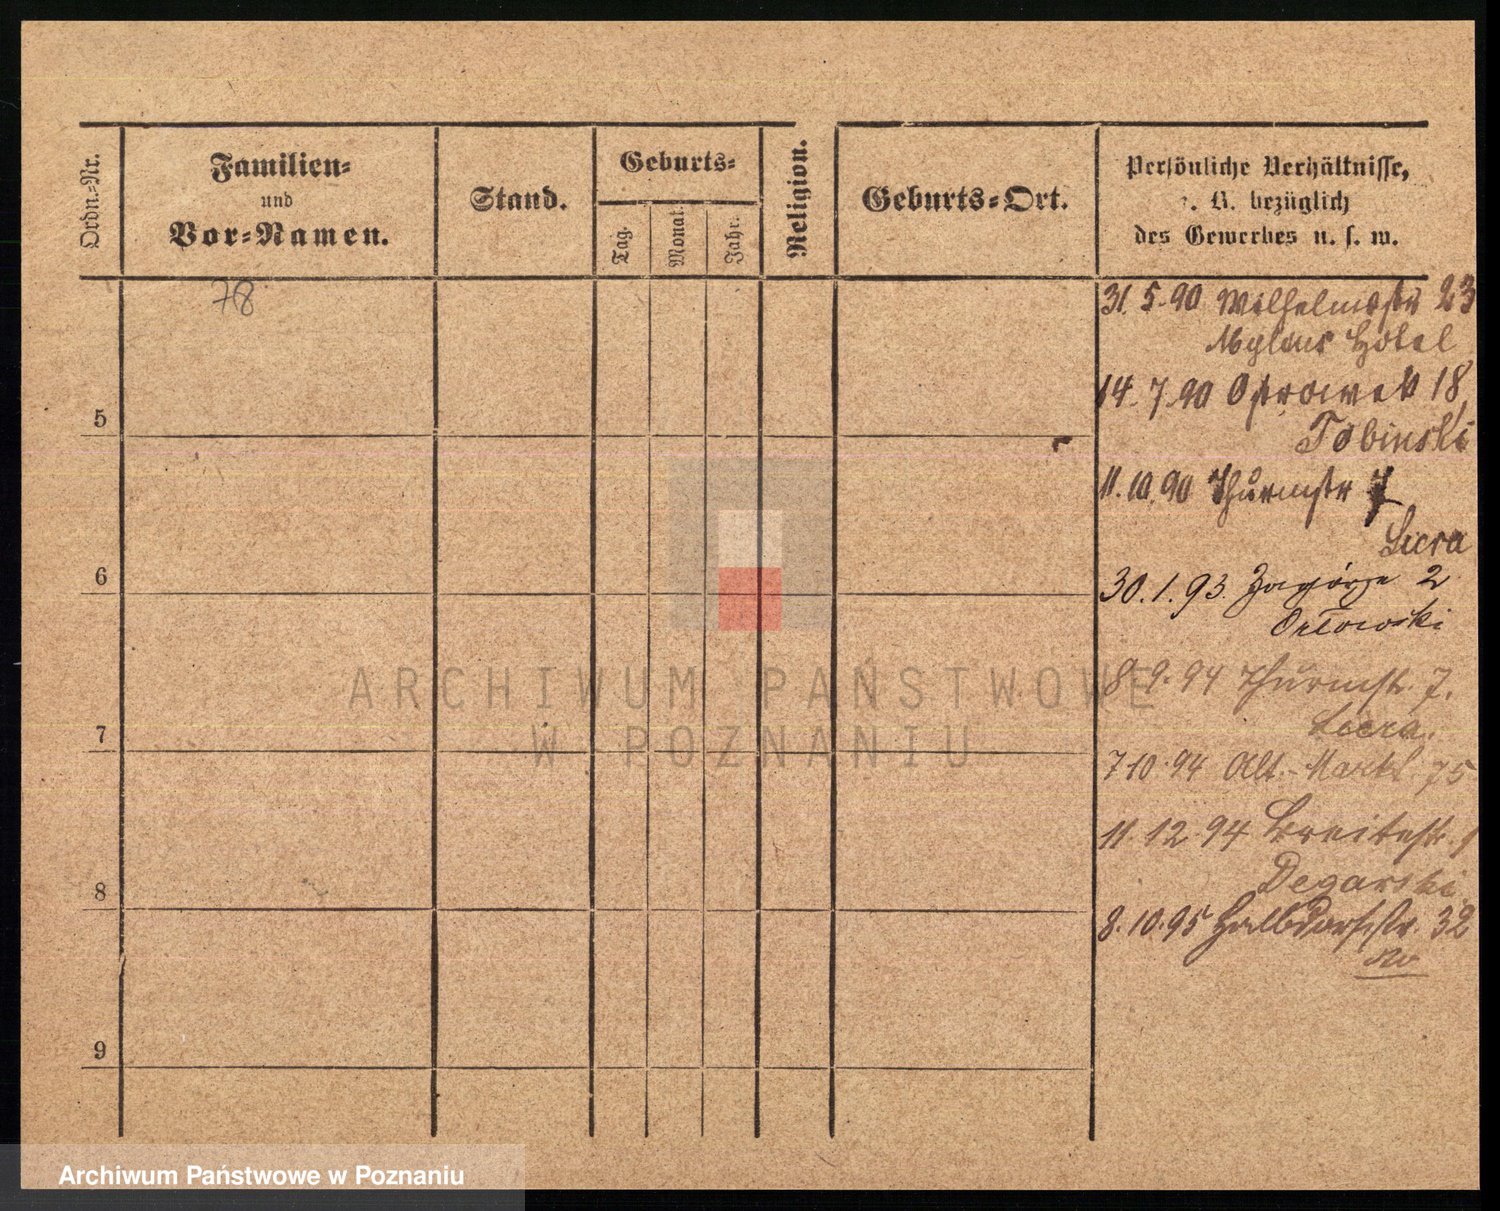 Ordn.-Nr.
Familien-
und
Vor-Namen.
Stand.
Geburts-
Tag.
Monat.
Jahr.
Religion.
Geburts-Ort.
Persönliche Verhältnisse,
z. B. bezüglich
des Gewerbes u. s. w.
78
31.5.90 Wilhelmstr 23
Mylius Hotel
14.7.90 Ostrowek 18,
Tobinski
5
11.10.90 Thurmstr 7
Sicra
6
30.1.93. Zagórze 2
Orlowski
8.9.94 Thurmstr. 7.
Sicra.
7
7 10.94 Alt.-Markt. 75
11.12.94 Breitestr. 1
Degarski
8
8.10.95 Halbdorfstr. 32
9
ARCHIWUM PAŃSTWOWE
W POZNANIU
Archiwum Państwowe w Poznaniu